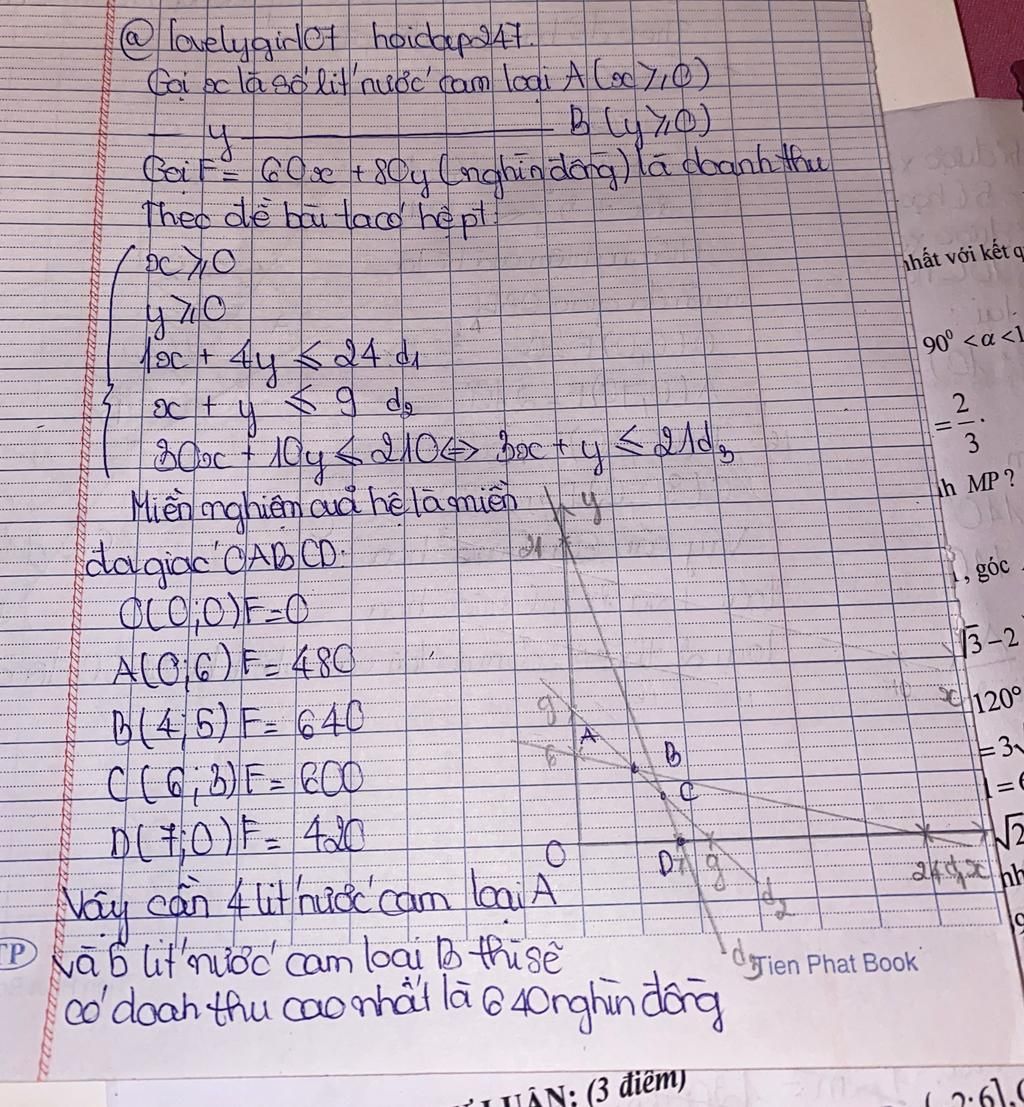 @ lovelygirl07 hoidap247.
Gọi x là số lít nước cam loại A (x ≥ 0)
— y ——— B (y ≥ 0)
Gọi F = 60x + 80y (nghìn đồng) là doanh thu
Theo đề bài ta có hệ pt:
x ≥ 0
y ≥ 0
1x + 4y ≤ 24 d1
x + y ≤ 9 d2
30x + 10y ≤ 210 ⇔ 3x + y ≤ 21 d3
Miền nghiệm của hệ là miền
đa giác OABCD:
O(0;0) F = 0
A(0;6) F = 480
B(4;5) F = 640
C(6;3) F = 600
D(7;0) F = 420
Vậy cần 4 lít nước cam loại A
và 5 lít nước cam loại B thì sẽ
có doah thu cao nhất là 640 nghìn đồng
y
21
9
A
6
B
C
O
D
9
24
d1
x
d2
d3
Tien Phat Book
TP
nhất với kết q
90° < α < 1
= 2/3.
nh MP ?
, góc
√3 − 2
120°
= 3
1 = 6
√2
nh
LUẬN: (3 điểm)
2;6]